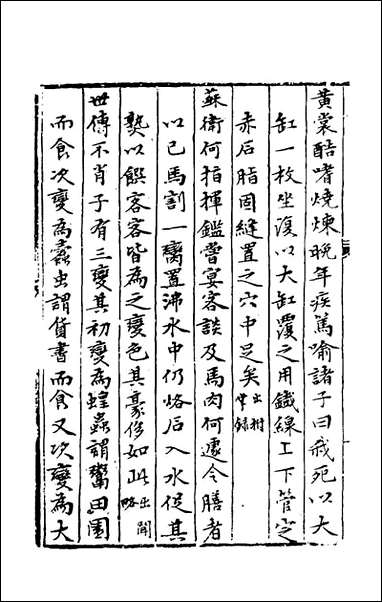 黄裳酷嗜燒煉晚年疾篤喻諸子曰我死以大
缸一枚坐復以大缸覆之用鐵線上下管定
赤石脂固縫置之穴中足矣出錄
蘇衛何指揮鑑嘗宴客談及馬肉何遽令膳者
以己馬割一臠置沸水中仍烙后入水促其
熟以饌客客皆為之變色其豪侈如此出聞略
世傳不肖子有三變其初變為蝗蟲謂鬻田園
而食次變為蠹虫謂貨書而食又次變為大